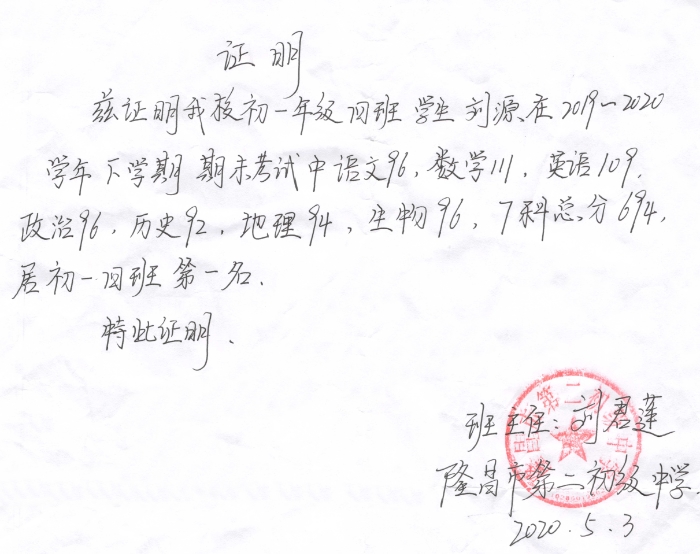 证明
兹证明我校初一年级四班学生刘源在2019~2020
学年下学期期末考试中语文96，数学111，英语109，
政治96，历史92，地理94，生物96，7科总分694，
居初一四班第一名．
特此证明．
班主任：刘君莲
隆昌市第二初级中学．
2020.5.3